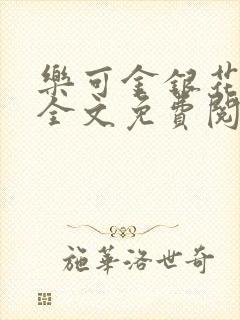 樂可金銀花
全文免費閱
施華洛世奇